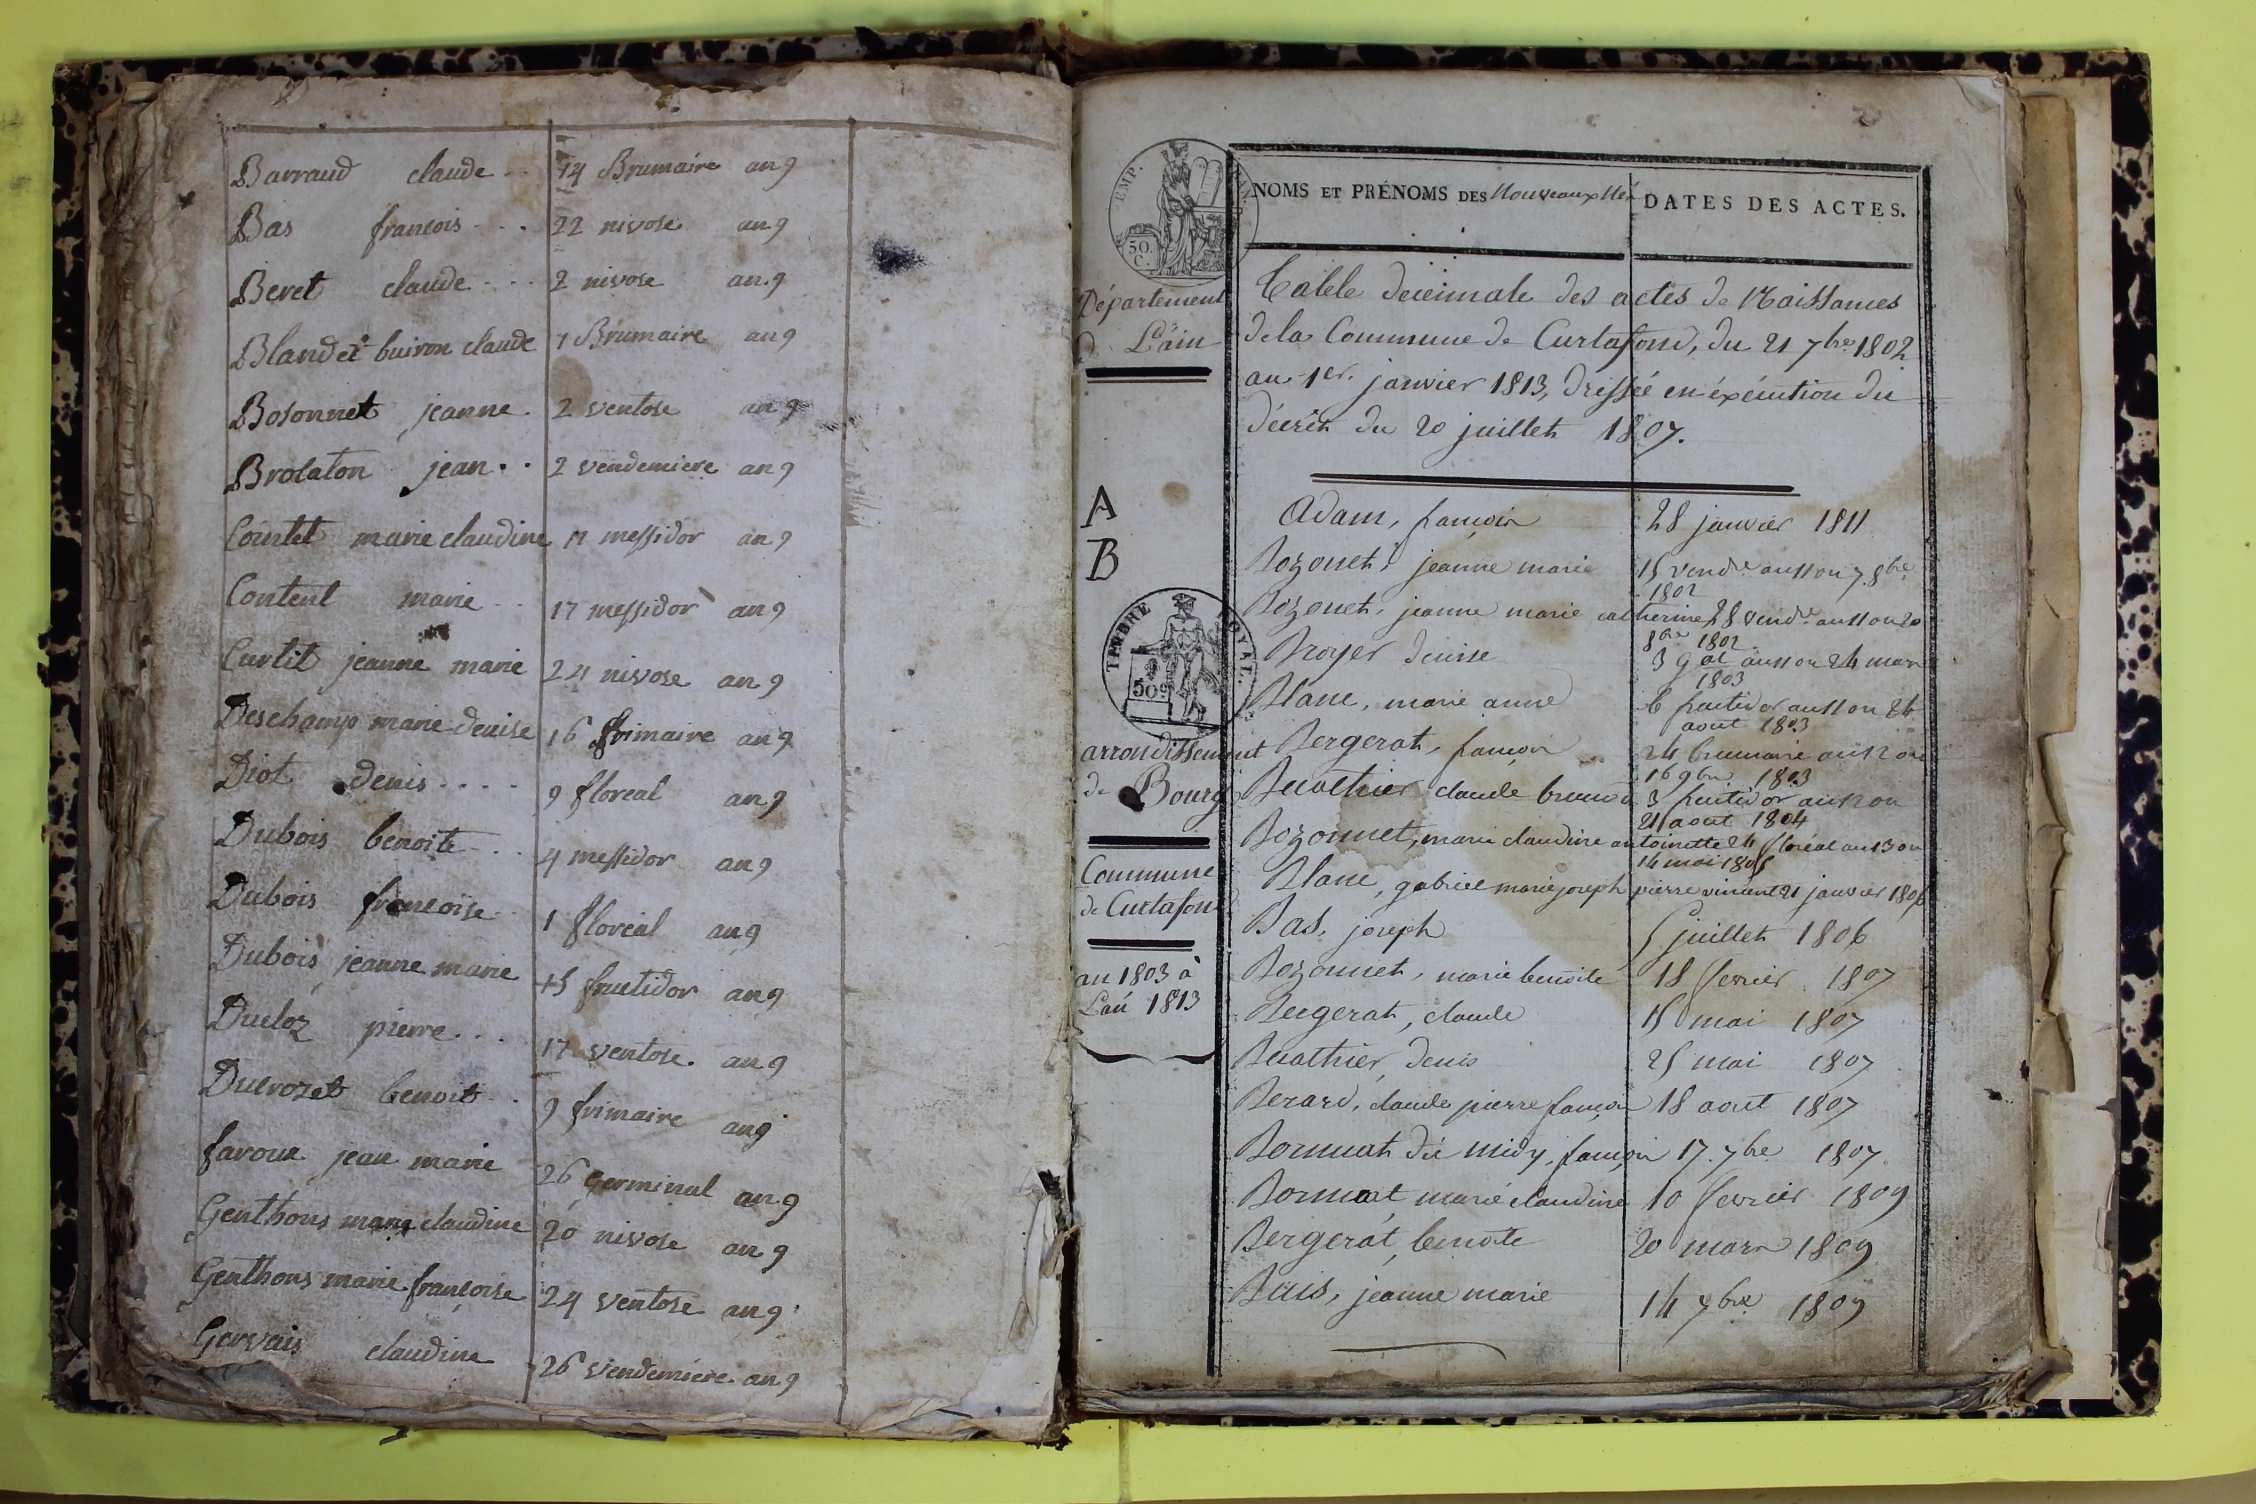 Barraud claude .. 14 Brumaire an 9
Bas francois - . . 22 nivose an 9
Beret claude - . . 2 nivose an 9
Blandet buiron claude 1 Brumaire an 9
Bosonnet jeanne . 2 ventose an 9
Brolaton jean . . 2 vendemiere an 9
Cointet marie claudine 11 messidor an 9
Content marie .. 17 messidor an 9
Curtil jeanne marie 24 nivose an 9
Deschamp marie denise 16 frimaire an 9
Diot denis . . . . 9 floreal an 9
Dubois benoite - . . 4 messidor an 9
Dubois francoise 1 floreal an 9
Dubois jeanne marie 15 fructidor an 9
Ducloz pierre . . . 17 ventose an 9
Ducrozet benoit . . 9 frimaire an 9
favoux jean marie 26 germinal an 9
Genthons marie claudine 20 nivose an 9
Genthons marie francoise 24 ventose an 9
Gervais claudine 26 vendemiere an 9
EMP.
50.
C.
NOMS ET PRÉNOMS DES Nouveaux Nés DATES DES ACTES.
Département
de L'ain
Table decennale des actes de Naissances
de la Commune de Curtafond, du 21 7bre 1802
au 1er. janvier 1813, dressée en éxécution du
décret du 20 juillet 1807.
A
B
TIMBRE ROYAL.
50c
arrondissement
de Bourg
Commune
de Curtafond
an 1803 à
L'an 1813
Adam, françois 28 janvier 1811
Bozonet, jeanne marie 15 vendre an 11 ou 7 8bre
1802
Bozonet, jeanne marie catherine 28 vendre an 11 ou 20
8bre 1802
Broyer denise 3 gal an 11 ou 24 mars
1803
Blanc, marie anne 6 fructidor an 11 ou 24
aout 1803
Bergerat, françois 24 brumaire an 12 ou
16 9bre 1803
Becathier claude benoit 3 fructidor an 12 ou
21 aout 1804
Bozonnet, marie claudine antoinette 24 floréal an 13 ou
14 mai 1805
Blanc, gabriel marie joseph pierre vincent 21 janvier 1806
Bas, joseph 5 juillet 1806
Bozonnet, marie benoite 18 fevrier 1807
Bergerat, claude 15 mai 1807
Becathier, denis 25 mai 1807
Berard, claude pierre françois 18 aout 1807
Bornuat dit midy, françois 17 7bre 1807
Bornuat, marie claudine 10 fevrier 1809
Bergerat, benoite 20 mars 1809
Buis, jeanne marie 14 7bre 1809